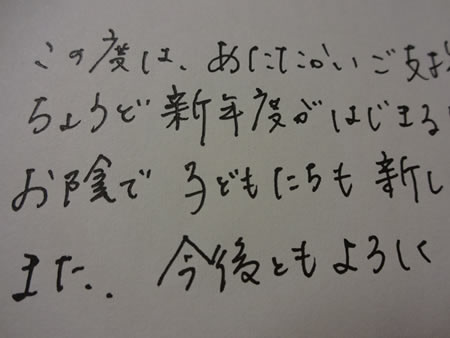 この度は、あたたかいご支
ちょうど新年度がはじまる
お陰で 子どもたちも新し
また、今後ともよろしく